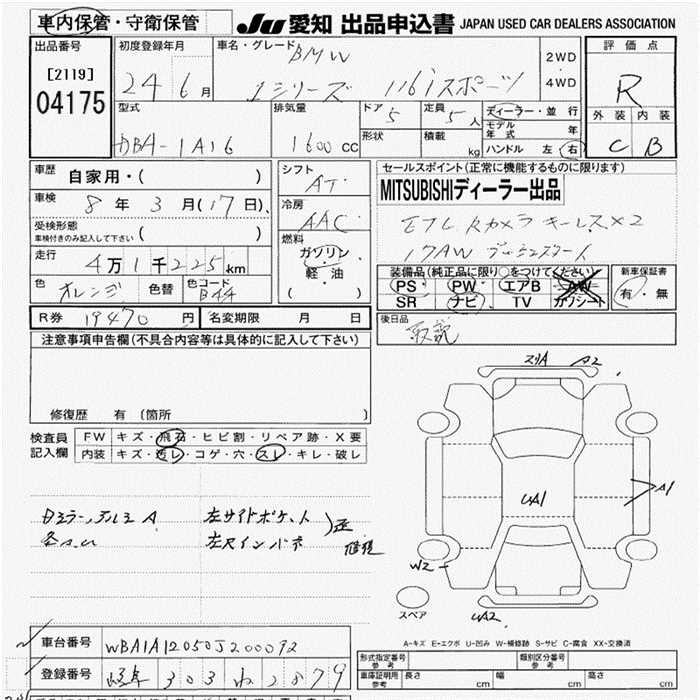 車内保管・守衛保管
JU 愛知 出品申込書 JAPAN USED CAR DEALERS ASSOCIATION
出品番号
[2119]
04175
初度登録年月
24 6 月
車名・グレード
BMW
1シリーズ 116iスポーツ
2WD
・
4WD
評価点
R
外装 内装
C B
型式
DBA-1A16
排気量
1600 cc
ドア
5
形状
定員
5 人
積載
kg
ディーラー・並行
モデル年式 年
ハンドル 左 右
車歴
自家用・( )
車検
8 年 3 月 (17 日)
受検形態
車検付きのみ記入して下さい ( )
走行
4万1千225km
色 オレンジ 色替 色コード B44
シフト
AT
冷房
AAC
燃料
ガソリン
・
軽・油
( )
セールスポイント(正常に機能するものに限ります)
MITSUBISHIディーラー出品
ETC Rカメラ キーレス×2
17AW プッシュスタート
装備品(純正品に限り○をつけてください)
PS・PW・エアB・AW
SR ナビ TV カワシート
新車保証書
有・無
R券 19470 円 名変期限 月 日
後日品
取説
注意事項申告欄(不具合内容等は具体的に記入して下さい)
修復歴 有 (箇所 )
検査員記入欄
FW キズ・飛石・ヒビ割・リペア跡・X要
内装 キズ・汚レ・コゲ・穴・スレ・キレ・破レ
スリA A2
UA1
A1
W2
UA2
スペア
左サイドポケット
左Rインパネ
A-キズ E-エクボ U-凹み W-補修跡 S-サビ C-腐食 XX-交換済
車台番号 WBA1A12050J200092
登録番号 岐阜 303 ね 2879
形式指定番号 参考
類別区分番号 参考
車庫証明用 参考 長さ cm 幅 cm 高さ cm